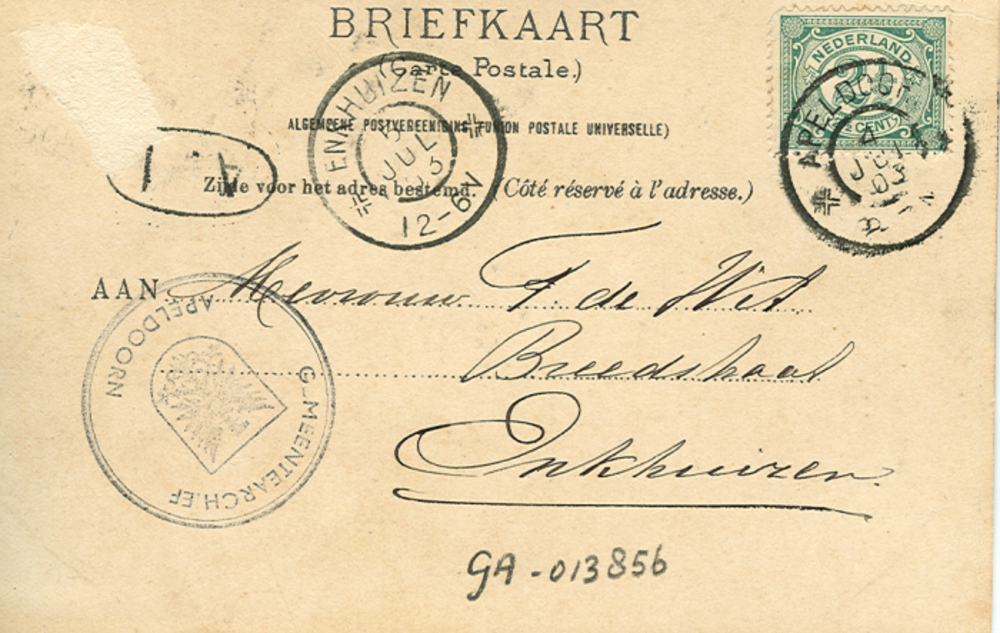 BRIEFKAART
(Carte Postale.)
ALGEMEENE POSTVEREENIGING (UNION POSTALE UNIVERSELLE)
Zijde voor het adres bestemd. (Côté réservé à l'adresse.)
NEDERLAND
CENT
APELDOOR
4
JUL
03
ENKHUIZEN
JUL
03
12-6N
AAN Mevrouw F de Wit
Breedstraat
Enkhuizen
GEMEENTEARCHIEF
APELDOORN
GA-013856